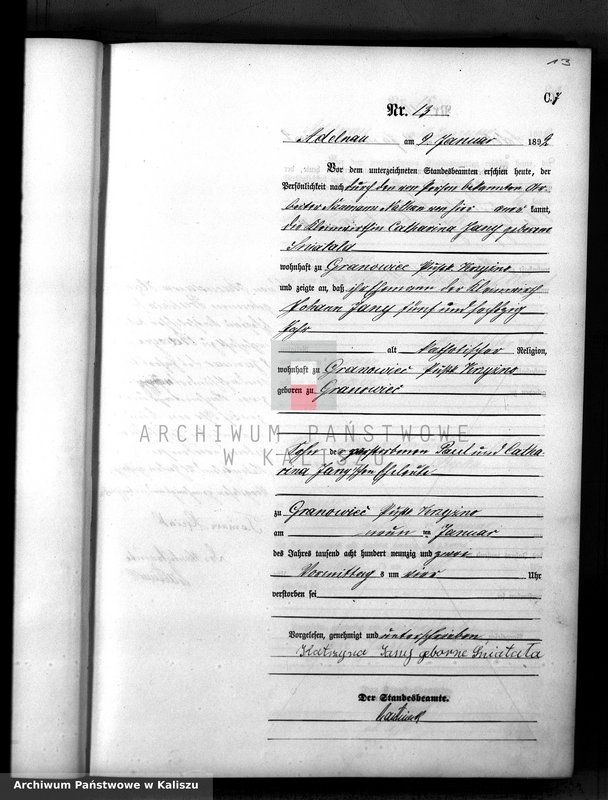 13
C. 7
Nr. 13
Adelnau am 9. Januar 1892
Vor dem unterzeichneten Standesbeamten erschien heute, der
Persönlichkeit nach durch den von Person bekannten Ar-
beiter von hier aner kannt,
die Kleinwirthin Catharina Jany geborene
Sniatala
wohnhaft zu Granowiec
und zeigte an, daß ihr Ehemann der Kleinwirth
Johann Jany, fünf und sechszig
Jahr
alt katholischer Religion,
wohnhaft zu Granowiec
geboren zu Granowiec
ARCHIWUM PAŃSTWOWE
W KALISZU
Sohn der verstorbenen Paul und Catha-
rina Jany'schen Eheleute
zu Granowiec
am neun ten Januar
des Jahres tausend acht hundert neunzig und zwei
Vormittag s um vier Uhr
verstorben sei
Vorgelesen, genehmigt und unterschrieben
Katrzyna Jany geborne Sniatała
Der Standesbeamte.
Archiwum Państwowe w Kaliszu